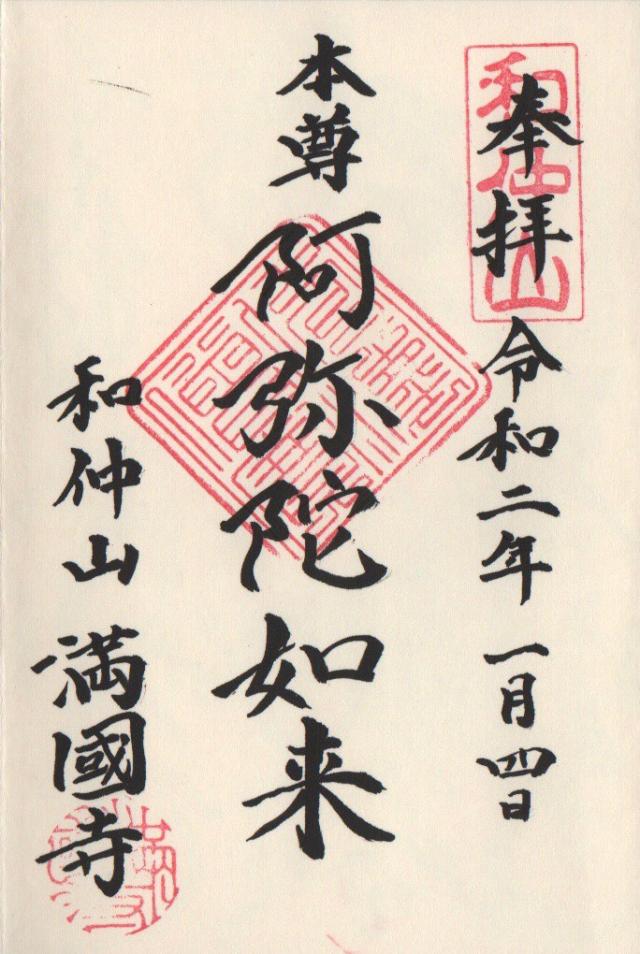 奉拝 令和二年一月四日
和仲山
本尊 阿弥陀如来
和仲山 満國寺